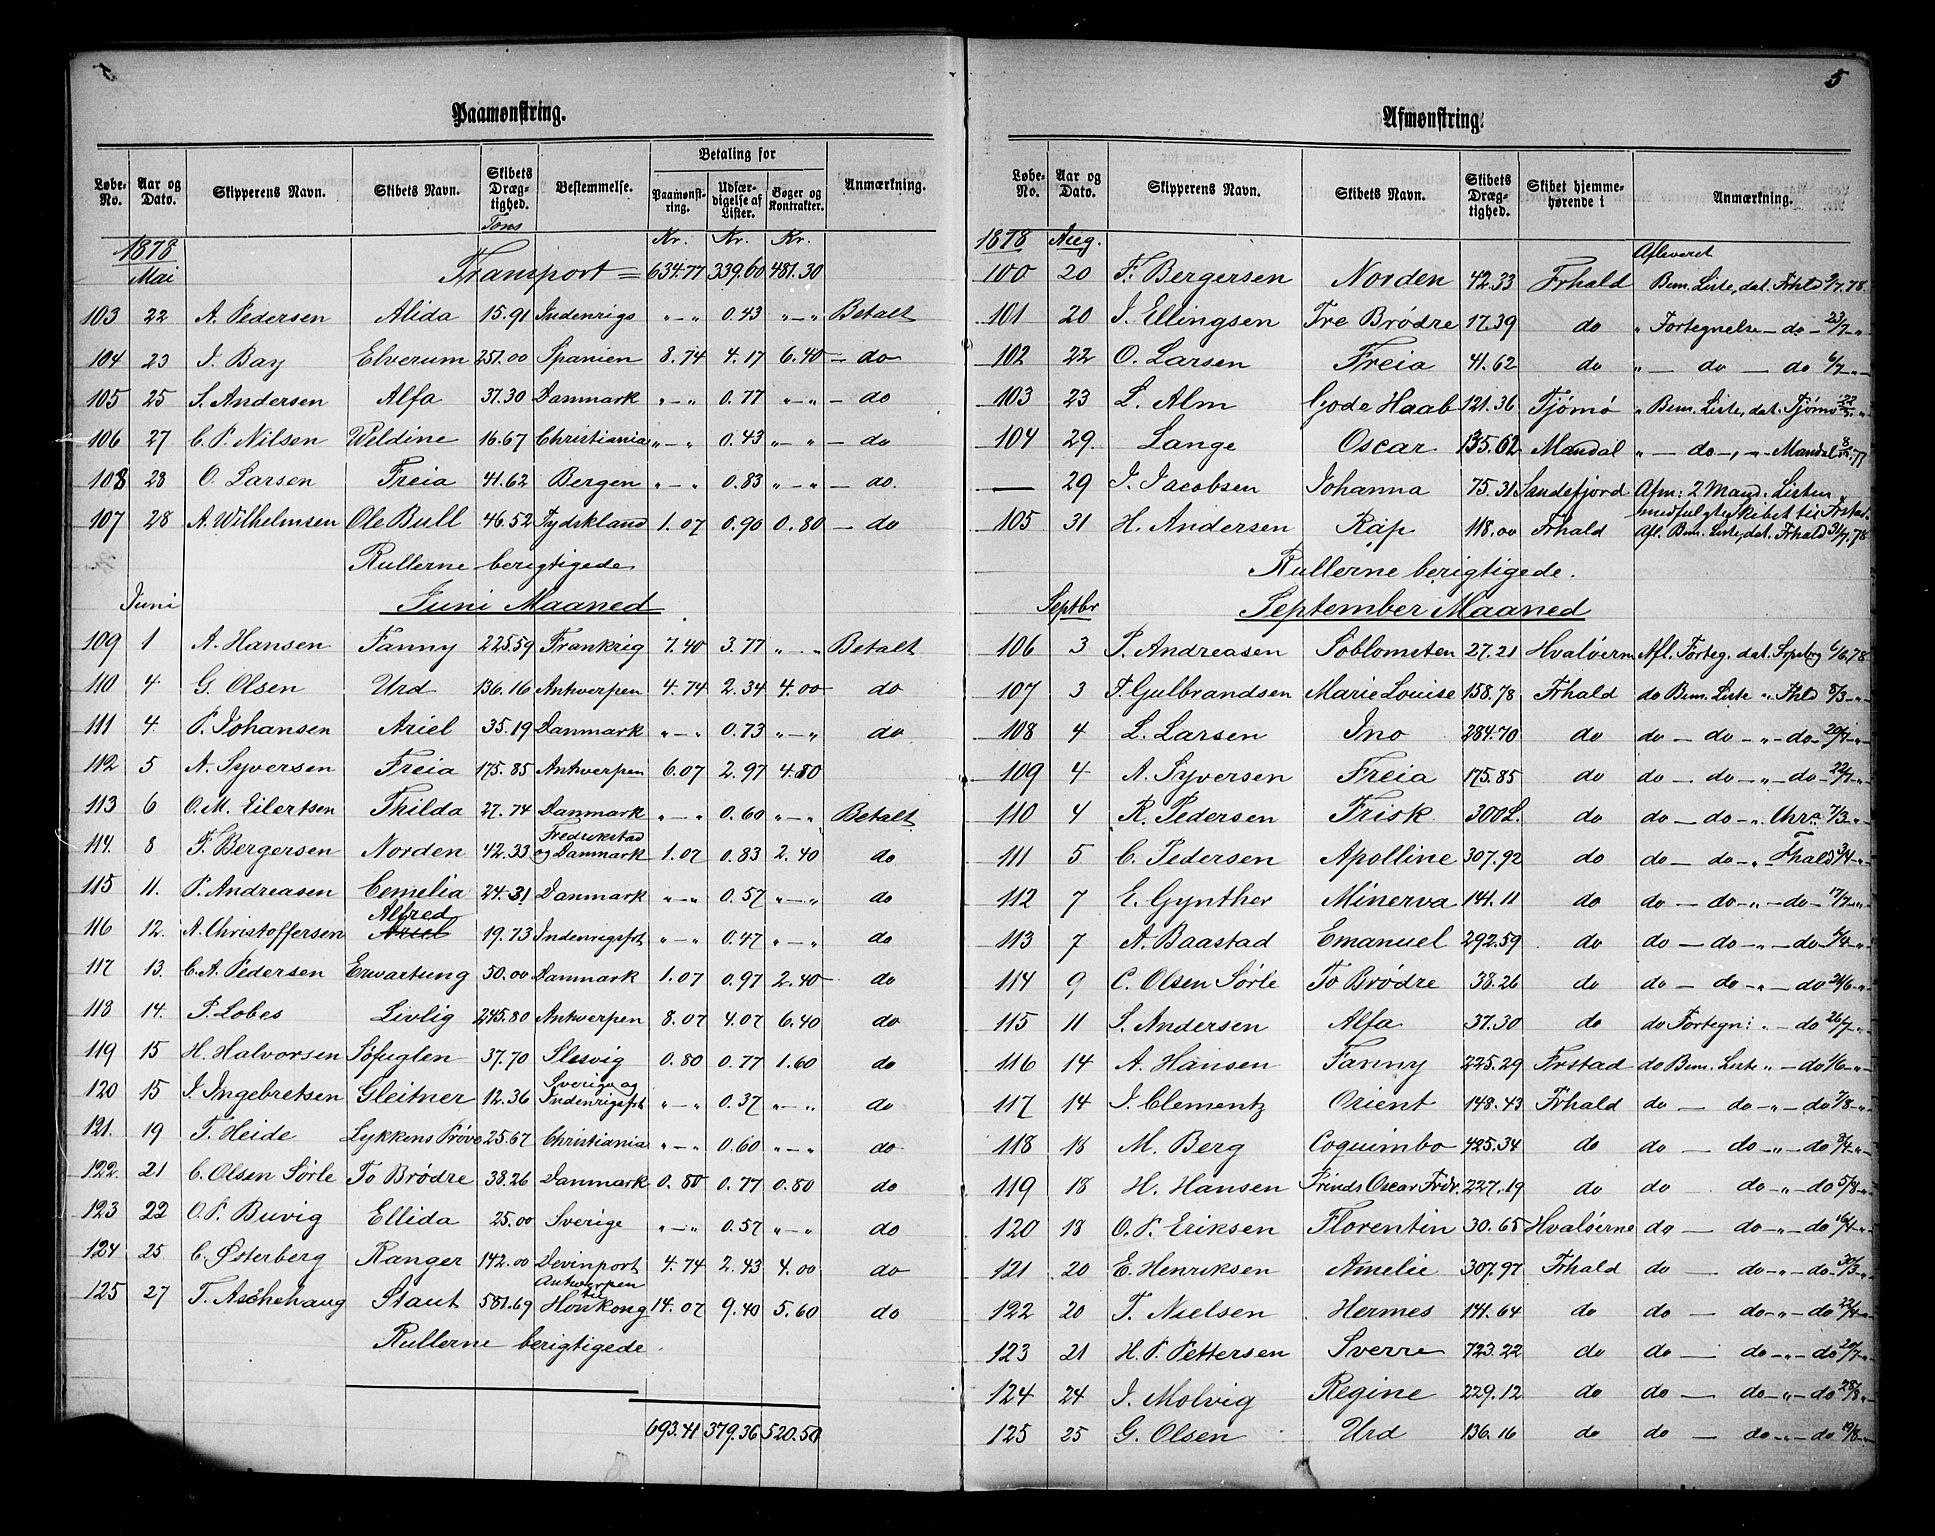 Paamønstring.
Løbe-No. | Aar og Dato. | Skipperens Navn. | Skibets Navn. | Skibets Dræg-tighed. Tons | Bestemmelse. | Betaling for | Paamønst-ring. | Udfær-digelse af Lister. | Bøger og Kontrakter. | Anmærkning.
1878 Kr. Kr. Kr.
Mai Transport = 634.77 339.60 481.30
103 22 A. Pedersen Alida 15.91 Indenrigs " - " 0.43 " - " Betalt
104 23 J. Bay Elverum 251.00 Spanien 8.74 4.17 6.40 - do
105 25 S. Andersen Alfa 37.30 Danmark " - " 0.77 " - " - do
106 27 C. P. Nilsen Weldine 16.67 Christiania " - " 0.43 " - " - do
108 28 O. Larsen Freia 41.62 Bergen " - " 0.83 " - " - do.
107 28 A. Wilhelmsen Ole Bull 46.52 Tydskland 1.07 0.90 0.80 - do
Rullerne berigtigede
Juni Juni Maaned
109 1 A. Hansen Fanny 225.59 Frankrig 7.40 3.77 " - " Betalt
110 4 G. Olsen Urd 136.16 Antwerpen 4.74 2.34 4.00 do
111 4. P. Johansen Ariel 35.19 Danmark " - " 0.73 " - " do
112 5 A. Syversen Freia 175.85 Antwerpen 6.07 2.97 4.80
113 6 O. M. Eilertsen Thilda 27.74 Danmark " - " 0.60 " - " Betalt
114. 8 F. Bergersen Norden 42.33 Fredrikstad og Danmark 1.07 0.83 2.40 do
115 11. P. Andreasen Cemelia 24.31 Danmark " - " 0.57 " - " do
116 12. A. Christoffersen Alfred Ariel 19.73 Indenrigsfrt " - " 0.47 " - " do
117 13. C. A. Pedersen Erwartung 50.00 Danmark 1.07 0.97 2.40 do
118 14. P. Lobes Livlig 245.80 Antwerpen 8.07 4.07 6.40 do
119 15 H. Halvorsen Søfuglen 37.70 Slesvig 0.80 0.77 1.60 do
120 15 J. Ingebretsen Gleitner 12.36 Sverige og Indenrigsfrt " - " 0.37 " - " do
121. 19 T. Heide Lykkens Prøve 25.67 Christiania " - " 0.60 " - " do
122. 21 C. Olsen Sørle To Brødre 38.26 Danmark 0.80 0.77 0.80 do
123 22 O. P. Buvig Ellida 25.00 Sverige " - " 0.57 " - " do
124 25 C. Østerberg Ranger 142.00 Devinport 4.74 2.43 4.00 do
125 27 T. Aschehaug Staut 581.69 Antwerpen til Honkong 14.07 9.40 5.60 do
Rullerne berigtigede.
693.41 379.36 520.50
5
Afmønstring.
Løbe-No. | Aar og Dato. | Skipperens Navn. | Skibets Navn. | Skibets Dræg-tighed. | Skibet hjemme-hørende i | Anmærkning.
1878 Aug. Afleveret
100 20 F. Bergersen Norden 42.33 Frhald Bem. Liste, dat. Frhld 9/7.78.
101 20 J. Ellingsen Tre Brødre 17.39 do " Fortegnelse - do - 23/7 "
102 22 O. Larsen Freia 41.62 do " - do - do 6/7 -"-
103 23 L. Alm Gode Haab 121.36 Tjømø " Bem. Liste, dat. Tjømø 22/3 "
104 29. Lange Oscar 135.62 Mandal " - do -, -" Mandal 8/10.77
— 29 J. Jacobsen Johanna 75.31 Sandefjord Afm: 2 Mand. Listen medfulgte Skibet til Frstad.
105 31 H. Andersen Rap 118.00 Frhald Afl. Bem. Liste, dat. Frhald 31/7.78
Rullerne berigtigede.
Septbr September Maaned
106 3 P. Andreasen Søblomsten 27.21 Hvaløern Afl. Forteg. dat. Srpsbog 6/6.78
107 3 F. Gulbrandsen Marie Louise 158.78 Frhald do Bem. Liste " Fhld 8/3 -"-
108 4 L. Larsen Ino 284.70 do do - do - " - do - 20/7 -"-
109 4 A. Syversen Freia 175.85 do do - do - " - do - 22/7 -"-
110 4 R. Pedersen Frisk 300 L. do do - do - " Chra 7/3 -"-
111 5 C. Pedersen Apolline 307.92 do do - do - " Fhald 3/4 -"-
112 7 E. Gynther Minerva 141.11 do do - do - " - do - 17/7 -"-
113 7 A. Baastad Emanuel 292.59 do do - do - " - do 2/4 -"-
114 9 C. Olsen Sørle To Brødre 38.26 do do - do - " - do 24/6 -"-
115 11 S. Andersen Alfa 37.30 do do Fortegn: " - do 26/7 -"-
116 14 A. Hansen Fanny 225.29 Frstad do Bem. Liste " - do 1/6 -"-
117 14 J. Clementz Orient 148.43 Frhald do - do - " - do 7/8 -"-
118 18 M. Berg Coquimbo 425.34 do do do - " - do 3/4 -"-
119 18 H. Hansen Prinds Oscar Frdr. 227.19 do do do - " - do 5/8 -"-
120 18 O. P. Eriksen Florentin 30.65 Hvaløerne do - do - " - do 16/4 -"-
121 20 E. Henriksen Amelie 307.97 Frhald do - do - " - do - 30/3 -"-
122 20 T. Nielsen Hermes 141.64 do do - do - " - do 22/4 -"-
123 21 H. P. Pettersen Sverre 723.22 do do - do - " - do 20/7 -"-
124 24 J. Molvig Regine 229.12 do do - do - " - do 28/8 -"-
125 25 G. Olsen Urd 136.16 do do - do - " - do 19/8 -"-